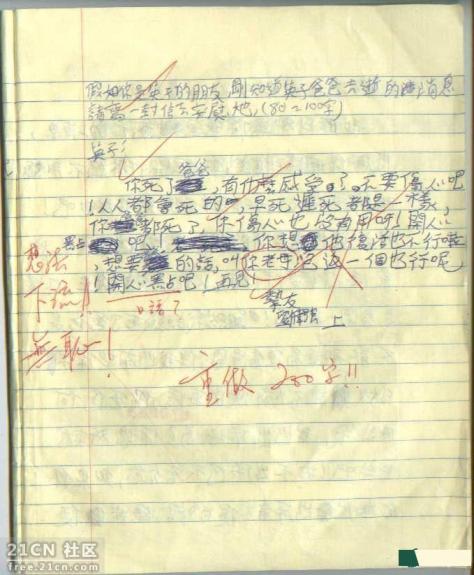 假如你是英子的朋友,剛知道英子爸爸去逝的消息
請寫一封信去安慰她,(80-100字)
英子:
爸爸
你死了,有什麼感受。了。不要傷心吧
!人人都會死的,早死遲死都是一樣,
你都死了,你傷心也沒有用呀!開心
點吧!你想他復活也不行啦
,想要的話,叫你老母包返一個好行呢
!開心點吧!再見!
摯友
上
想法
下流!
無恥!
口語?
重做 200字!!
21CN 社区
free.21cn.com